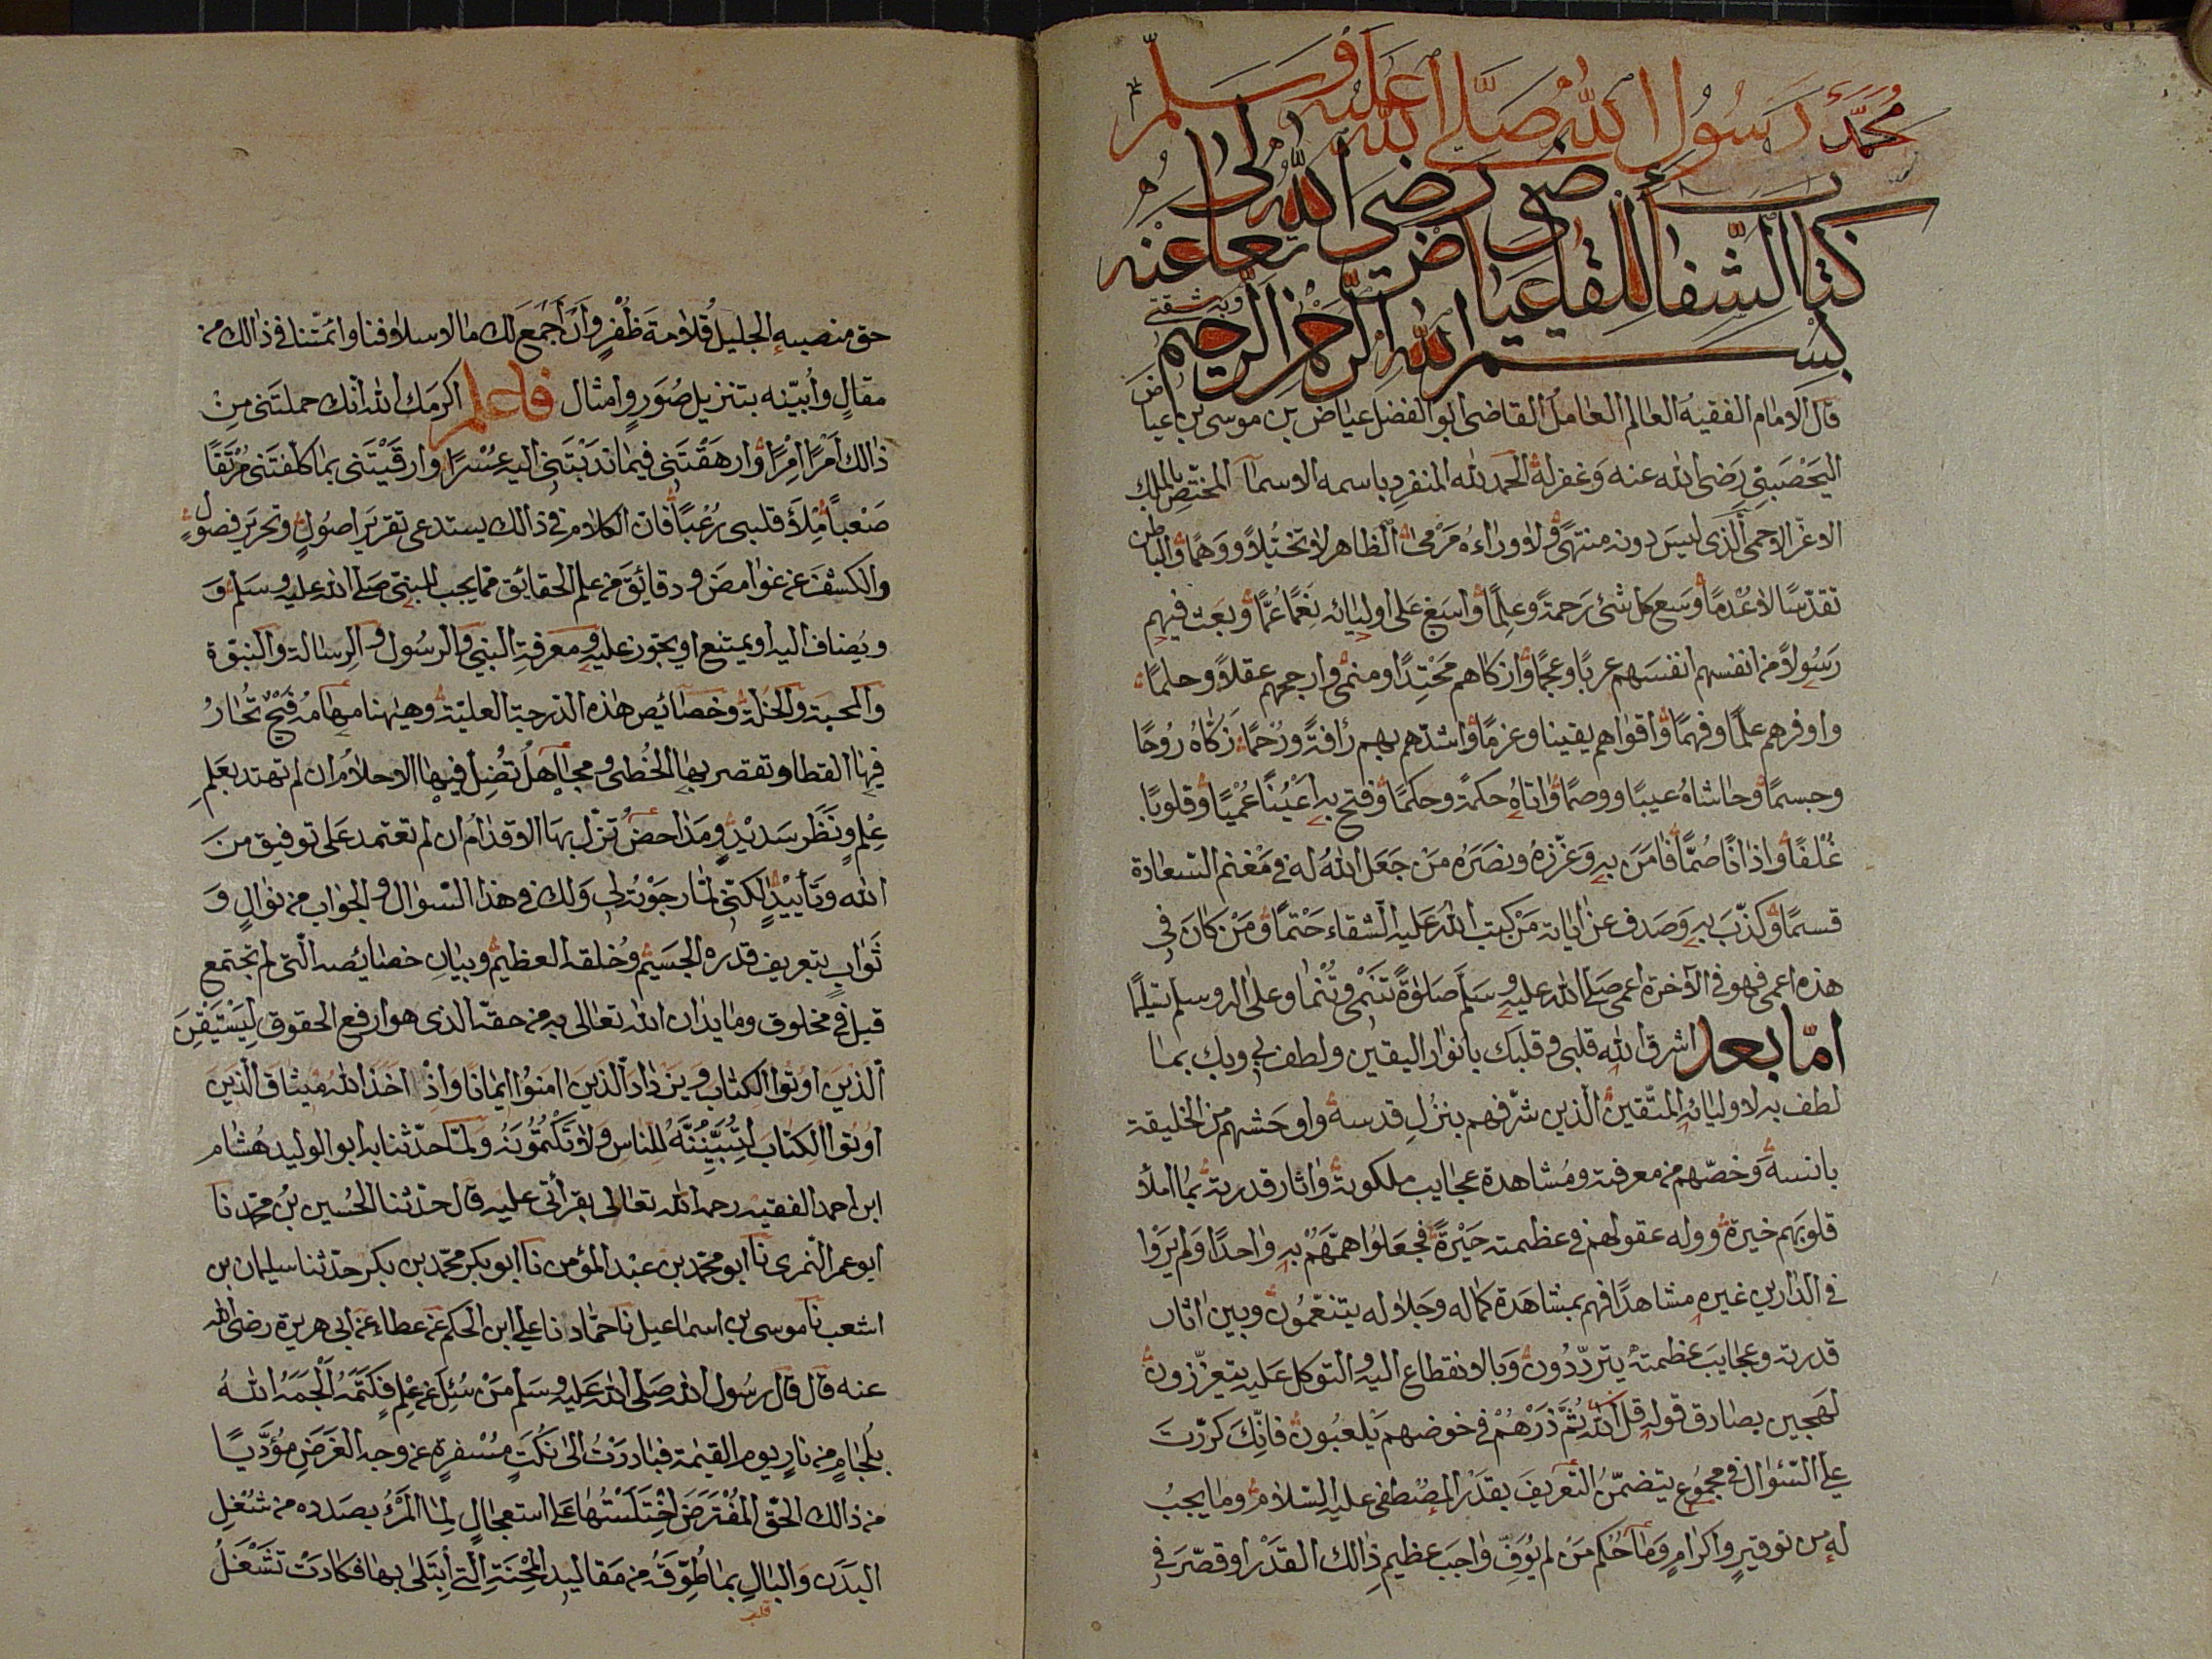 محمد رسول الله صلى الله عليه وسلم
كتاب الشفا للقاضى عياض رضى الله تعالى عنه
بسم الله الرحمن الرحيم وبه ثقتى
قال الامام الفقيه العالم العامل القاضى ابو الفضل عياض بن موسى بن عياض
اليَحْصَبيِّ رَضى الله عنه وَغفر له الحمد لله المنفرد باسمه الاسمآ المختص بالملك
الاعزّ الاحمى الَّذى ليسَ دونه منتهًى ولا وراءهُ مَرْمى الظاهر لا تخيّلاً ووَهمًا والباطن
تقدّسًا لا عُدْمًا وَسِع كل شئ رَحمةً وعِلمًا واَسبغ عَلى اوليائه نِعَمًا عُمًّا وبَعث فيهم
رَسُولاً من انفسهم انفسَهم عربًا وعجمًا وازكاهم مَحْتِدًا ومنمًى وارجحهم عقلاً وحلمًا
واوفرهم علمًا وفهمًا واقواهم يقينا وعزمًا واشدّهم بهم رأفةً ورُحمًا زَكّاهُ رُوحًا
وجسمًا وحاشاهُ عيبًا ووصمًا واتاهُ حكمة وحكمًا وفتح به اَعْيُنًا عُمْيًا وقلوبًا
غُلفًا واذانًا صُمًّا فامَنَ به وعَزّزهُ ونصَرَه من جَعَل اللهُ له فى مَغنم السعادة
قسمًا وكذّبَ به وَصَدف عن اياته مَنْ كتب اللهُ عَليه الشقاء حَتمًا ومَنْ كانَ فى
هذه اعمى فهو فى الآخرة اعمى صلى الله عليه وسَلّم صَلوةً تَنمى وتُنْما وعلى اله وسلم تسليمًا
امّا بعد اشرق الله قلبى وقلبك بانوار اليقين ولطف لى وبك بما
لطف به لاوليائه المتّقين الذين شرّفهم بنزُلِ قدسه واوحَشهم من الخليقة
بانسه وَخصّهم من معرفته ومُشاهدة عجايب ملكوته واثار قدرته بما املأ
قلوبَهم خيرة ووله عقولهم فى عظمته حَيْرةً فجعَلوُا همّهُم به واحدًا وَلم يَرَوا
فى الدّارين غيره مشاهدًا فهم بمشاهَدة كماله وجَلاله يتنعّمُون وبين اثار
قدرته وعجايبَ عظمته يتردّدُون وَبالانقطاع اليه والتوكل عَليه يتعزّزون
لهجين بصادق قوله قل الله ثُمَّ ذَرْهُمْ فى خوضهم يَلعَبُون فانّكَ كرّرْتَ
على السّؤال فى مجمُوع يتضمّنُ التّعريفَ بقدْر المصْطفى عليه السّلام وما يجبُ
له من توقيرٍ واكرامٍ وَمَا حُكم مَنْ لم يُوَفِّ واجبَ عظيم ذلك القَدْر او قصّرَ فى
حق منصبه الجليل قُلامةَ ظُفْرٍ وانْ اَجْمَعَ لك ما لاسلافنا وائمّتنا فى ذالك من
مقالٍ وأبيّنه بتنزيل صُوَرٍ وامثال فاعلم اكرمَك الله انّك حملتَنى مِنْ
ذٰلك اَمْرًا اِمْرًا وارهَقْتَنى فيما ندَبْتَنى اليه عُسْرًا وارقَيْتَنى بما كلفتَنى مُرْتَقًا
صَعْبًا مَلأَ قلبى رُعْبًا فان الكلام فى ذالك يستدعى تقريرَ اصُولٍ وتحريرَ فصولٍ
والكشفَ عن غوامضَ ودقائقَ من علم الحقائق ممّا يجب للنبىّ صلى الله عليه وسَلّم وَ
ويُضاف اليه او يمتنع او يجوز عليه ومعرفةِ النبي والرسُول والرِسالة والنبوّة
والمحبة والخُلة وخصَائص هٰذه الدّرجة العليّة وههنا مهَامهُ فَيْحٌ تُحَارُ
فيها القطا وتقصر بها الخُطى ومجاهلُ تُضِل فيها الاحلامُ ان لم تهتد بعَلم
عِلمٍ ونَظَر سَدِيْدٍ ومَدَاحضُ تزلّ بهَا الاقدَامُ ان لم تعتمد عَلى توفيق منَ
الله وتَأييْدٍ لكنّى لمّا رجَوْتُ لى ولك فى هذا السّؤال والجواب من نوالٍ وَ
ثَوَابٍ بتعريف قدره الجسَيْم وخُلقه العظيم وبيانِ خصَايصه الّتى لم تجتمع
قبل فى مخلوق وما يدان الله تعَالى به من حقّه الذى هو ارفع الحقوق لِيَسْتَيْقِنَ
الّذينَ اوتوا الكتاب ويَزدادَ الّذينَ امنوُا ايمانًا وَاِذْ اخَذَ اللهُ مِيثاق الّذين
اوتوا الكتابَ لَتُبيّنُنّهُ للنّاس ولا تَكتُمُونَهُ ولمَا حدّثنا به ابو الوليد هُشام
ابن احمد الفقيه رحمه الله تعالى بقرأتى عليه قال حدّثنا الحُسين بنُ محمّد نا
ابو عمر النّمرى نا ابو محمّد بن عبْد المؤمن نا ابو بكر محمّد بن بكر حدّثنا سليمان بن
اشعب نا موسى بن اسماعيل نا حمّاد نا على ابن الحكم عن عطاء عن ابى هريرة رضى الله
عنه قال قال رسُول الله صَلى الله عَليه وسَلم مَنْ سُئِل عن عِلمٍ فكَتَمَهُ اَلجَمَهُ اللهُ
بلجَامٍ من نارٍ يوم القيٰمة فبادرْتُ الى نُكَتٍ مُسْفِرةٍ عن وجه الغَرَضِ مؤدّيًا
من ذالك الحقّ المُفْتَرَضَ اخْتَلَسْتُهَا عَلى استعجَالٍ لِمَا المَرْءُ بصَدده من شُغلِ
البدَن وَالبَالِ بمَا طُوّقَهُ من مَقاليد المِحْنَةِ الّتى اُبْتَلى بهَا فكادَتْ تَشْغَلُ
قلب